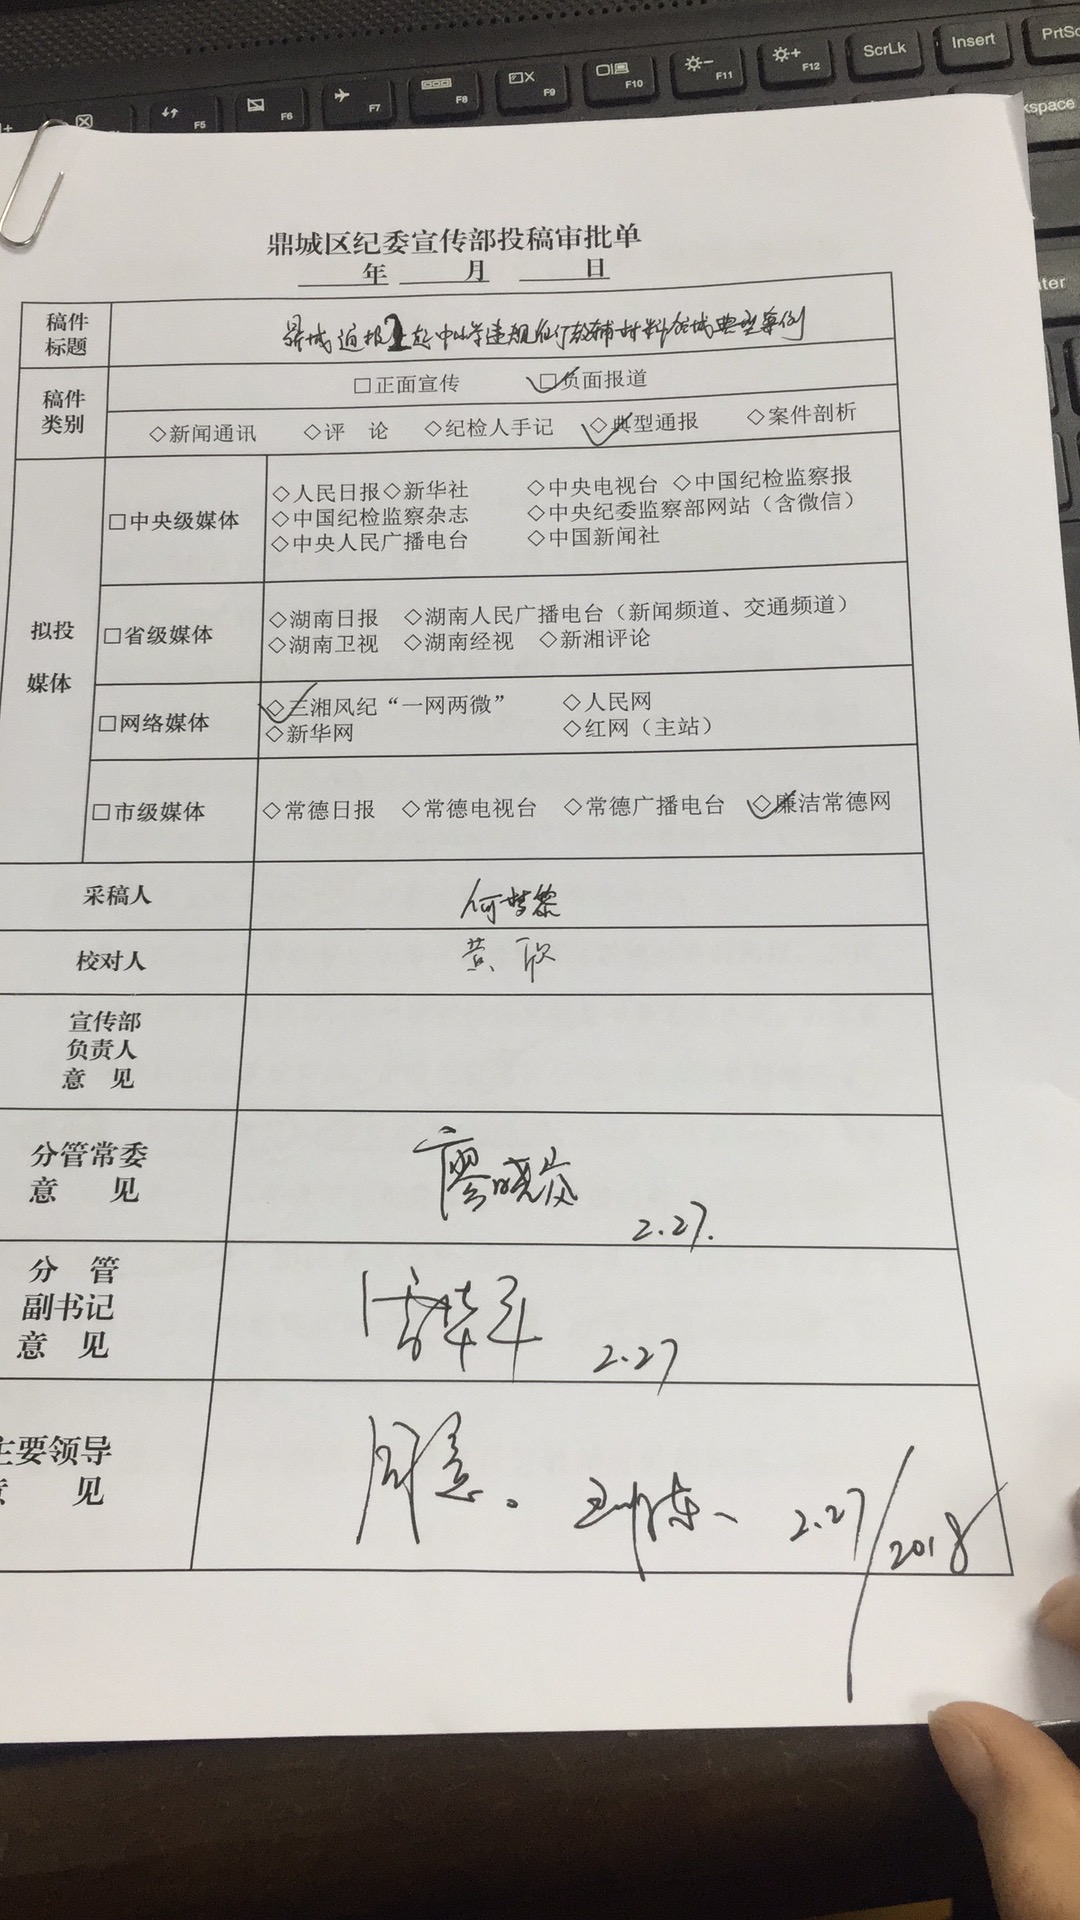 F5 F6 F7 F8 F9 F10 F11 F12 ScrLk Insert PrtSc
kspace
鼎城区纪委宣传部投稿审批单
年 月 日
稿件标题 鼎城通报2起中小学违规征订教辅材料 典型案例
稿件类别 □正面宣传 □负面报道
◇新闻通讯 ◇评 论 ◇纪检人手记 ◇典型通报 ◇案件剖析
拟投媒体
□中央级媒体
◇人民日报◇新华社 ◇中央电视台 ◇中国纪检监察报
◇中国纪检监察杂志 ◇中央纪委监察部网站（含微信）
◇中央人民广播电台 ◇中国新闻社
□省级媒体
◇湖南日报 ◇湖南人民广播电台（新闻频道、交通频道）
◇湖南卫视 ◇湖南经视 ◇新湘评论
□网络媒体
◇三湘风纪“一网两微” ◇人民网
◇新华网 ◇红网（主站）
□市级媒体 ◇常德日报 ◇常德电视台 ◇常德广播电台 ◇廉洁常德网
采稿人 何梦黎
校对人 黄欣
宣传部
负责人
意 见
分管常委
意 见
廖晓岚
2.27.
分 管
副书记
意 见
2.27
主要领导
意 见
同意。 2.27/2018